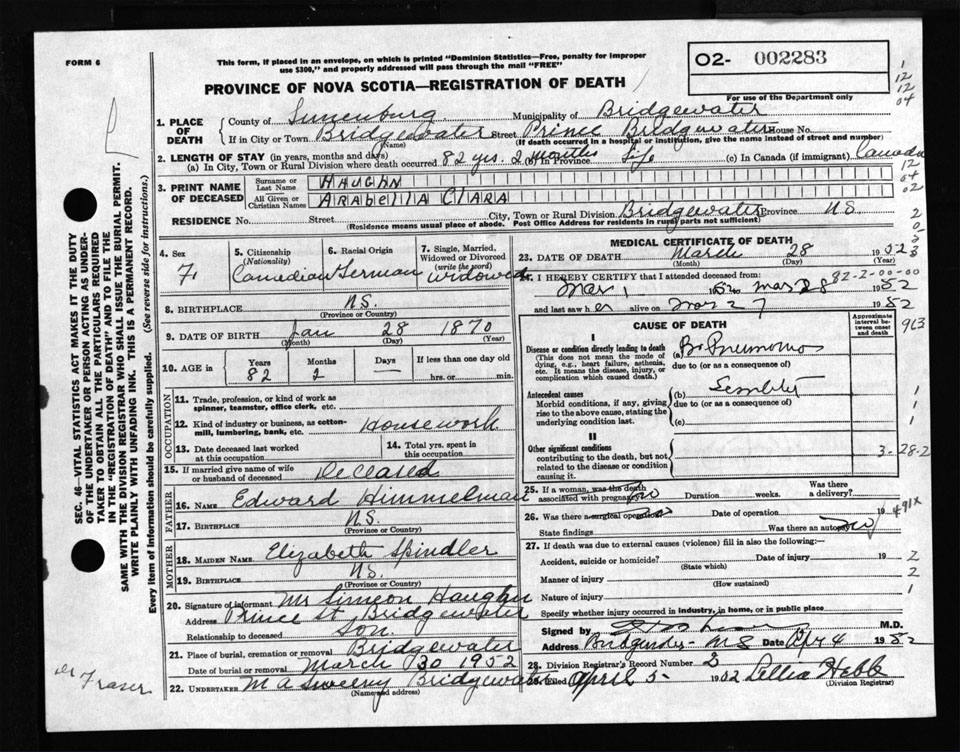 FORM 6
This form, if placed in an envelope, on which is printed "Dominion Statistics—Free, penalty for improper
use $300," and properly addressed will pass through the mail "FREE"
O2- 002283
For use of the Department only
PROVINCE OF NOVA SCOTIA—REGISTRATION OF DEATH
1. PLACE OF DEATH
County of Lunenburg Municipality of Bridgewater
If in City or Town Bridgewater Street Prince Bridgewater House No.
(Name) (If death occurred in a hospital or institution, give the name instead of street and number)
2. LENGTH OF STAY (in years, months and days)
(a) In City, Town or Rural Division where death occurred 82 yrs. 2 months (b) In Province Life (c) In Canada (if immigrant) Canada
3. PRINT NAME OF DECEASED
Surname or Last Name HAUGHN
All Given or Christian Names ARABELLA CLARA
RESIDENCE No. Street City, Town or Rural Division Bridgewater Province N.S.
(Residence means usual place of abode. Post Office Address for residents in rural parts not sufficient)
4. Sex F.
5. Citizenship (Nationality) Canadian
6. Racial Origin German
7. Single, Married, Widowed or Divorced (write the word) widowed
8. BIRTHPLACE N.S.
(Province or Country)
9. DATE OF BIRTH Jan 28 1870
(Month) (Day) (Year)
10. AGE in Years 82 Months 2 Days — If less than one day old hrs. or min.
OCCUPATION
11. Trade, profession, or kind of work as spinner, teamster, office clerk, etc.
12. Kind of industry or business, as cotton-mill, lumbering, bank, etc. Housework
13. Date deceased last worked at this occupation
14. Total yrs. spent in this occupation
15. If married give name of wife or husband of deceased Deceased
FATHER
16. NAME Edward Himmelman
17. BIRTHPLACE N.S.
(Province or Country)
MOTHER
18. MAIDEN NAME Elizabeth Spindler
19. BIRTHPLACE N.S.
(Province or Country)
20. Signature of informant Mr Simeon Haughn
Address Prince St Bridgewater
Relationship to deceased Son.
21. Place of burial, cremation or removal Bridgewater
Date of burial or removal March 30 1952
22. UNDERTAKER M A Sweeny Bridgewater
(Name and address)
MEDICAL CERTIFICATE OF DEATH
23. DATE OF DEATH March 28 1952
(Month) (Day) (Year)
24. I HEREBY CERTIFY that I attended deceased from: 82-2-00-00
Mar 1 1952 Mar 28 1952
and last saw her alive on Mar 27 1952
CAUSE OF DEATH
Approximate interval between onset and death
I
Disease or condition directly leading to death
(This does not mean the mode of dying, e.g., heart failure, asthenia, etc. It means the disease, injury, or complication which caused death.)
(a) Br Pneumonia
due to (or as a consequence of)
Antecedent causes
Morbid conditions, if any, giving rise to the above cause, stating the underlying condition last.
(b) Senility
due to (or as a consequence of)
(c)
II
Other significant conditions
contributing to the death, but not related to the disease or condition causing it.
3-28-2
25. If a woman, was the death associated with pregnancy no Duration weeks. Was there a delivery?
26. Was there a surgical operation Date of operation 19
State findings Was there an autopsy
491x
27. If death was due to external causes (violence) fill in also the following:—
Accident, suicide or homicide? Date of injury 19
(State which)
Manner of injury
(How sustained)
Nature of injury
Specify whether injury occurred in industry, in home, or in public place
Signed by M.D.
Address Bridgewater N S Date Apr 4 1952
28. Division Registrar's Record Number 2
29. Filed April 5 1952 Lellia Hebb
(Division Registrar)
SEC. 46—VITAL STATISTICS ACT MAKES IT THE DUTY
OF THE UNDERTAKER OR PERSON ACTING AS UNDER-
TAKER TO OBTAIN ALL THE PARTICULARS REQUIRED
IN THE "REGISTRATION OF DEATH" AND TO FILE THE
SAME WITH THE DIVISION REGISTRAR WHO SHALL ISSUE THE BURIAL PERMIT.
WRITE PLAINLY WITH UNFADING INK. THIS IS A PERMANENT RECORD.
Every item of information should be carefully supplied. (See reverse side for instructions.)
Dr Fraser
1
12
12
04
12
04
02
2
0
3
3
963
1
1
1
2
2
1